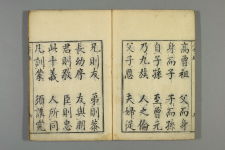 高曾祖 父而身
身而子 子而孫
自子孫 至曾元
乃九族 人之倫
父子恩 夫婦從
兄則友 弟則恭
長幼序 友與朋
君則敬 臣則忠
此十義 人所同
凡訓蒙 須講究